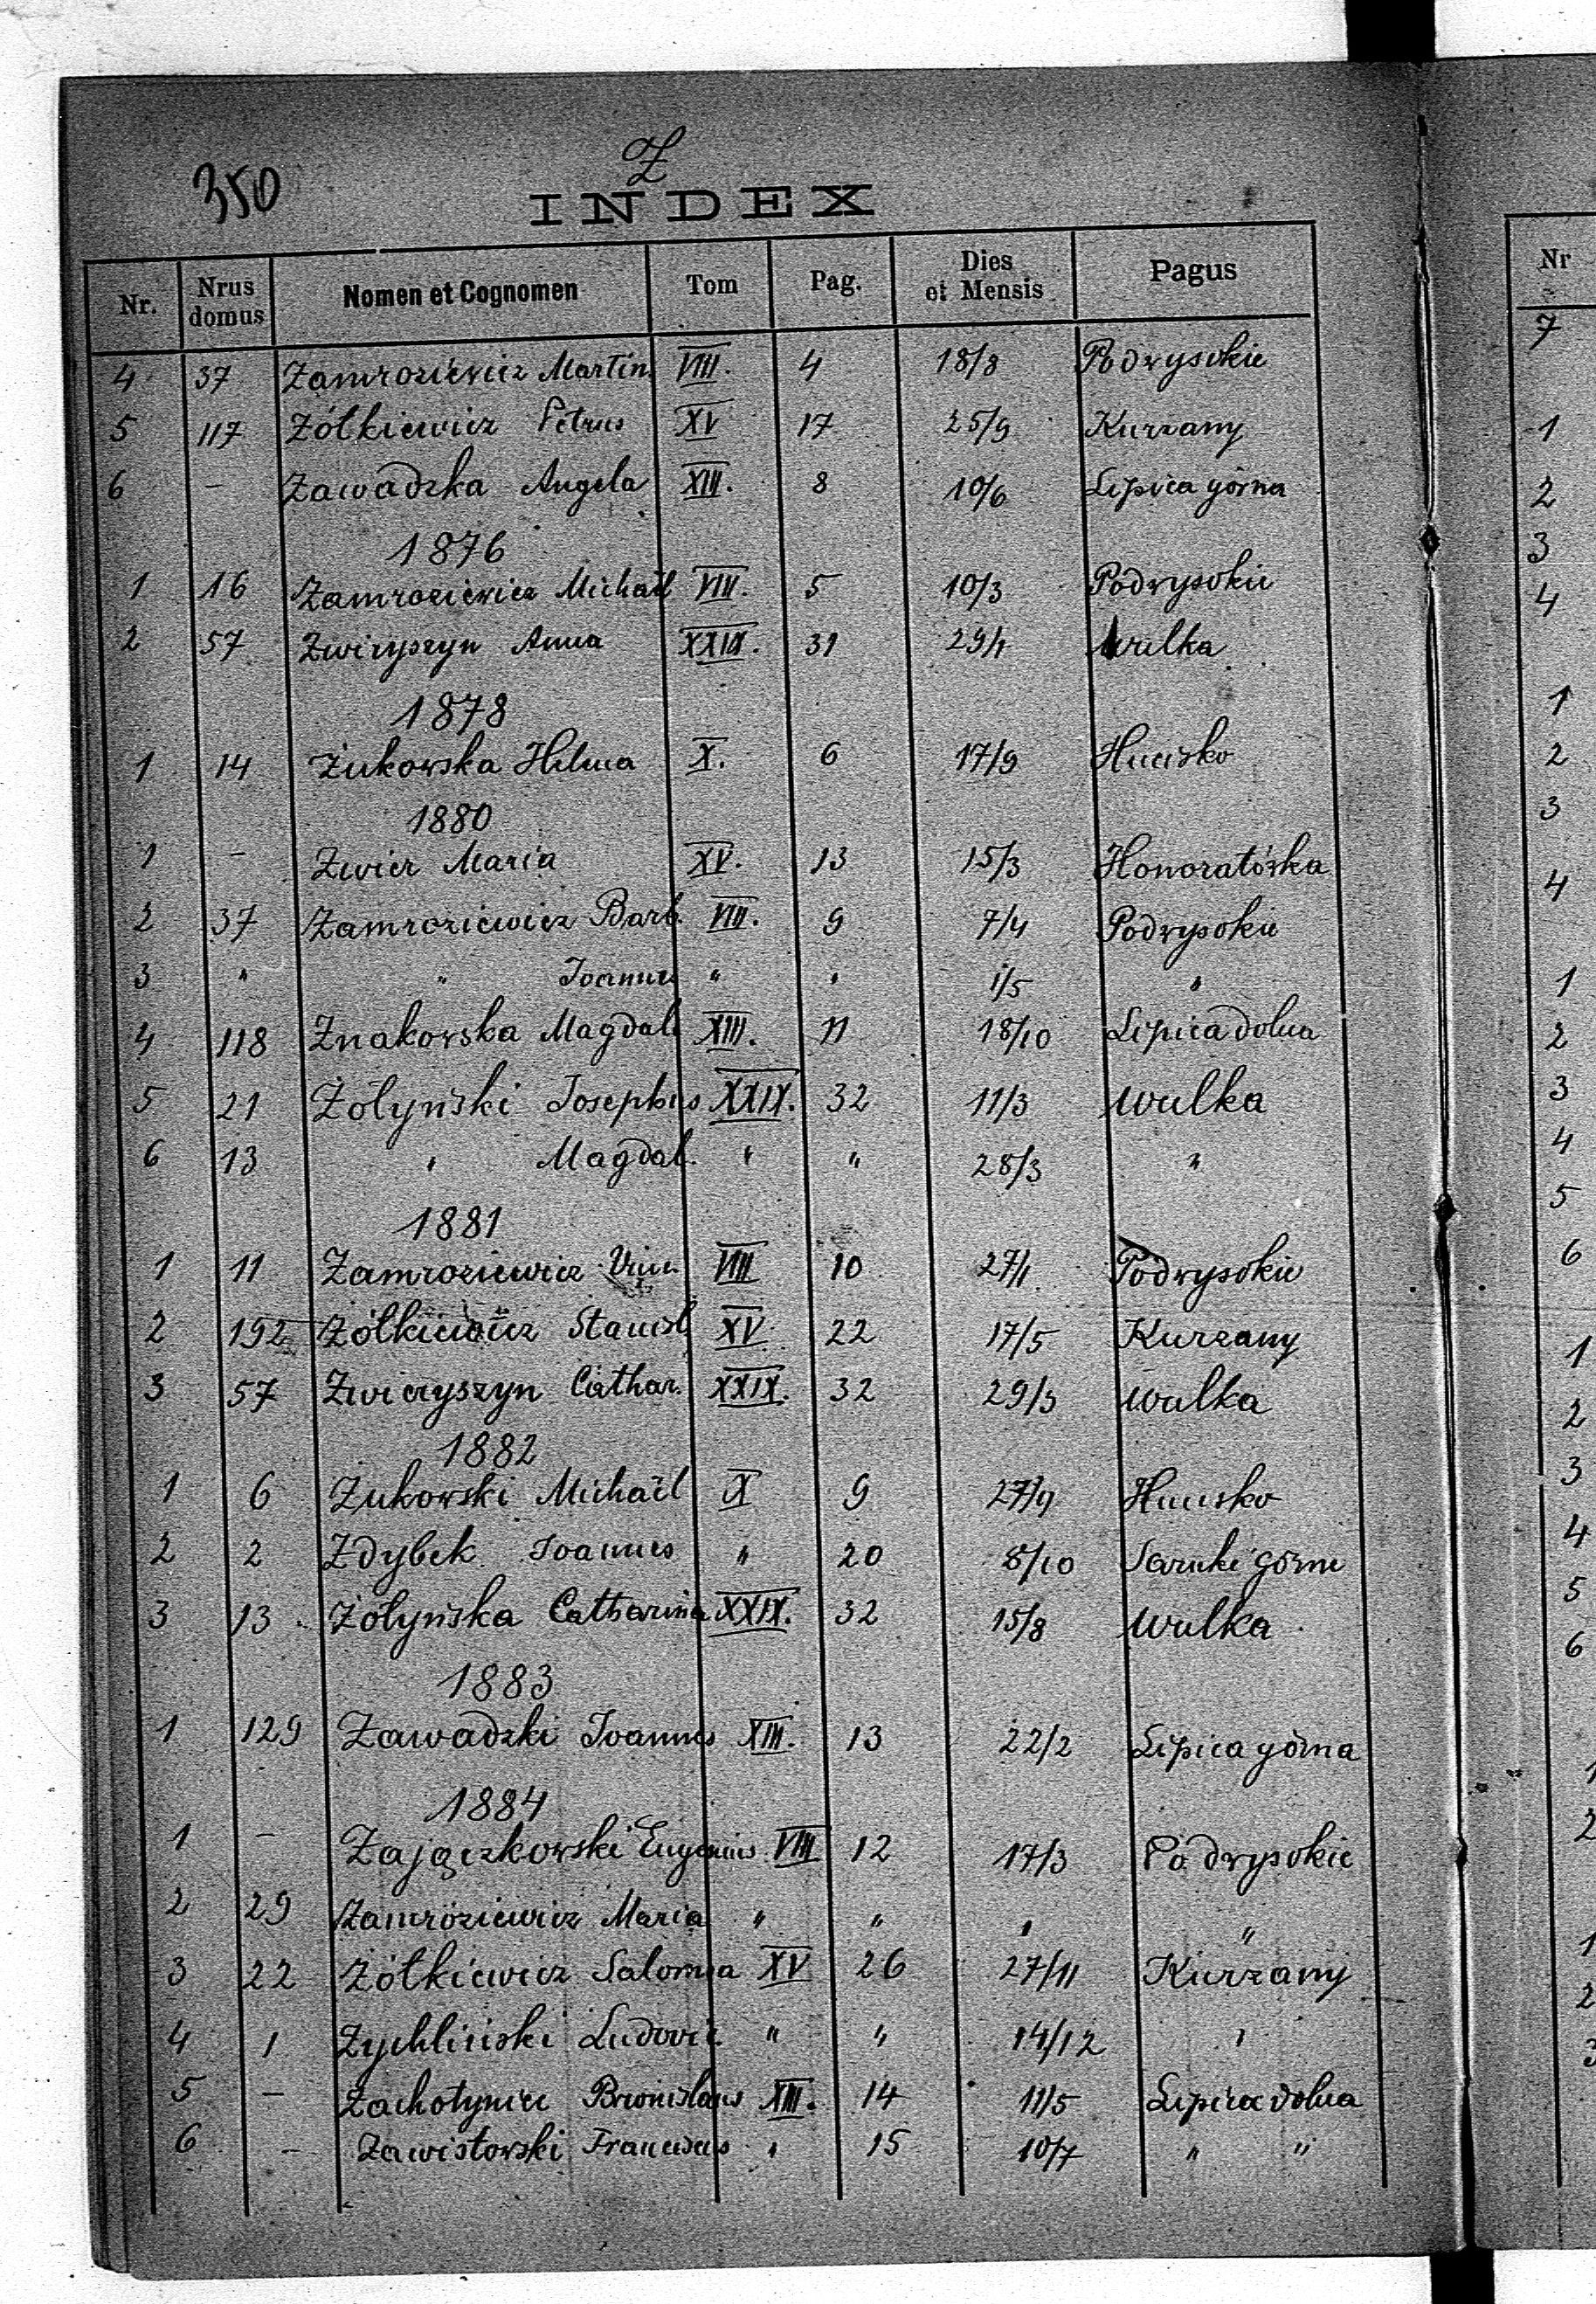 350
Z
INDEX
Nr. Nrus domus Nomen et Cognomen Tom Pag. Dies et Mensis Pagus
4 37 Zamroziewicz Martin. VIII. 4 18/8 Podwysokie
5 117 Żółkiewicz Petrus XV 17 25/9 Kurzany
6 – Zawadzka Angela XIII. 8 10/6 Lipica górna
1876
1 16 Zamroziewicz Michaël VIII. 5 10/3 Podwysokie
2 57 Zwiryszyn Anna XXIX. 31 29/4 Wulka
1878
1 14 Żukowska Helena X. 6 17/9 Hucisko
1880
1 – Zwier Maria XV. 13 15/3 Honoratówka
2 37 Zamroziewicz Barb. VIII. 9 7/4 Podwysokie
3 " " Joannes " " 1/5 "
4 118 Znakowska Magdal. XIII. 11 18/10 Lipica dolna
5 21 Żołyński Josephus XXIX. 32 11/3 Wulka
6 13 " Magdal. " " 28/3 "
1881
1 11 Zamroziewicz VIII 10 27/1 Podwysokie
2 192 Żółkiewicz Stanisl. XV 22 17/5 Kurzany
3 57 Zwieryszyn Cathar. XXIX. 32 29/3 Wulka
1882
1 6 Żukowski Michaël X 9 27/9 Hucisko
2 2 Zdybek Joannes " 20 8/10 Sarnki górne
3 13 Żołyńska Catharina XXIX. 32 15/8 Wulka
1883
1 129 Zawadzki Joannes XIII. 13 22/2 Lipica górna
1884
1 – Zajączkowski Eugenius VIII 12 17/3 Podwysokie
2 29 Zamroziewicz Maria " " " "
3 22 Żółkiewicz Salomea XV 26 27/11 Kurzany
4 1 Żychliński Ludovic " " 14/12 "
5 – Bronislaus XIII. 14 11/5 Lipica dolna
6 – Zawistowski Franciscus " 15 10/7 " "
Nr
7
1
2
3
4
1
2
3
4
1
2
3
4
5
6
1
2
3
4
5
6
1
2
1
2
3